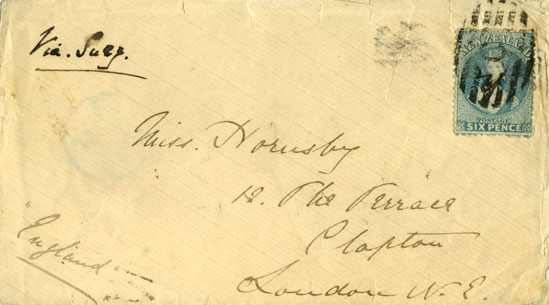 Via. Suez.
NEW ZEALAND
POSTAGE
SIX PENCE
Miss. Hornsby
12. The Terrace
Clapton
London N. E.
England